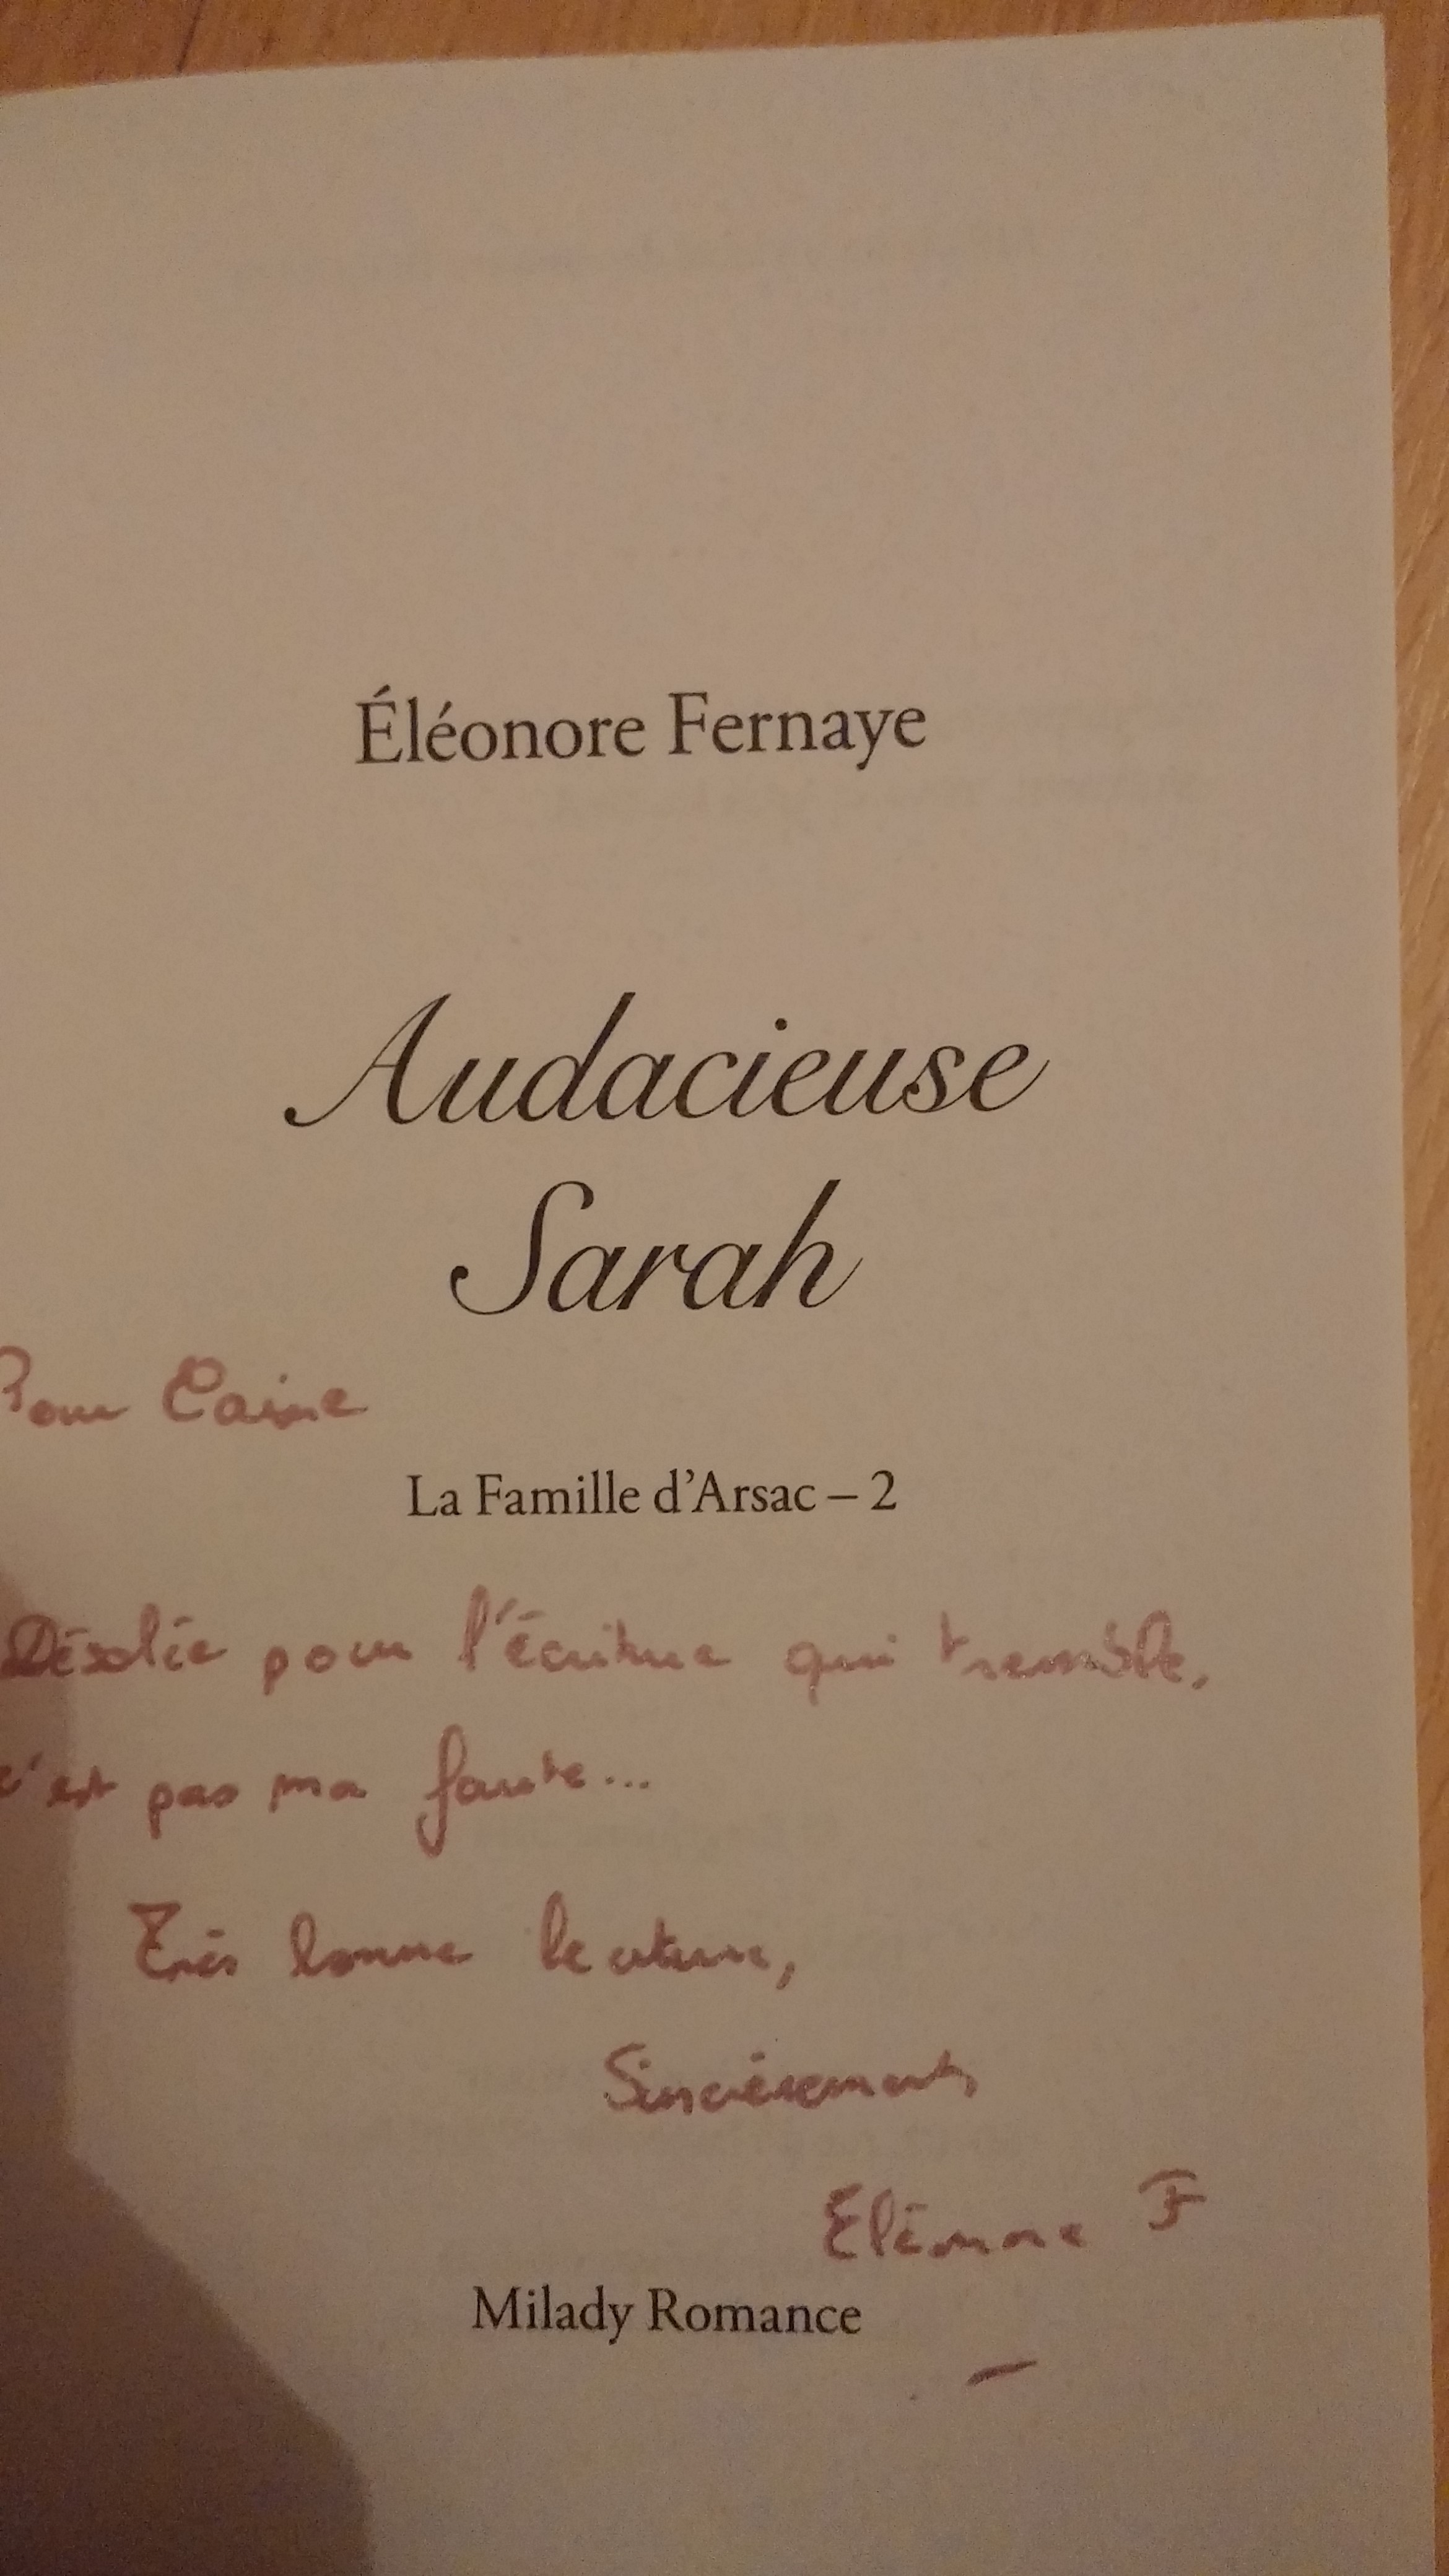 Éléonore Fernaye
Audacieuse
Sarah
Pour
La Famille d'Arsac – 2
Désolée pour l'écriture qui tremble,
c'est pas ma faute...
Très bonne lecture,
Sincèrement,
Eléonore F
Milady Romance